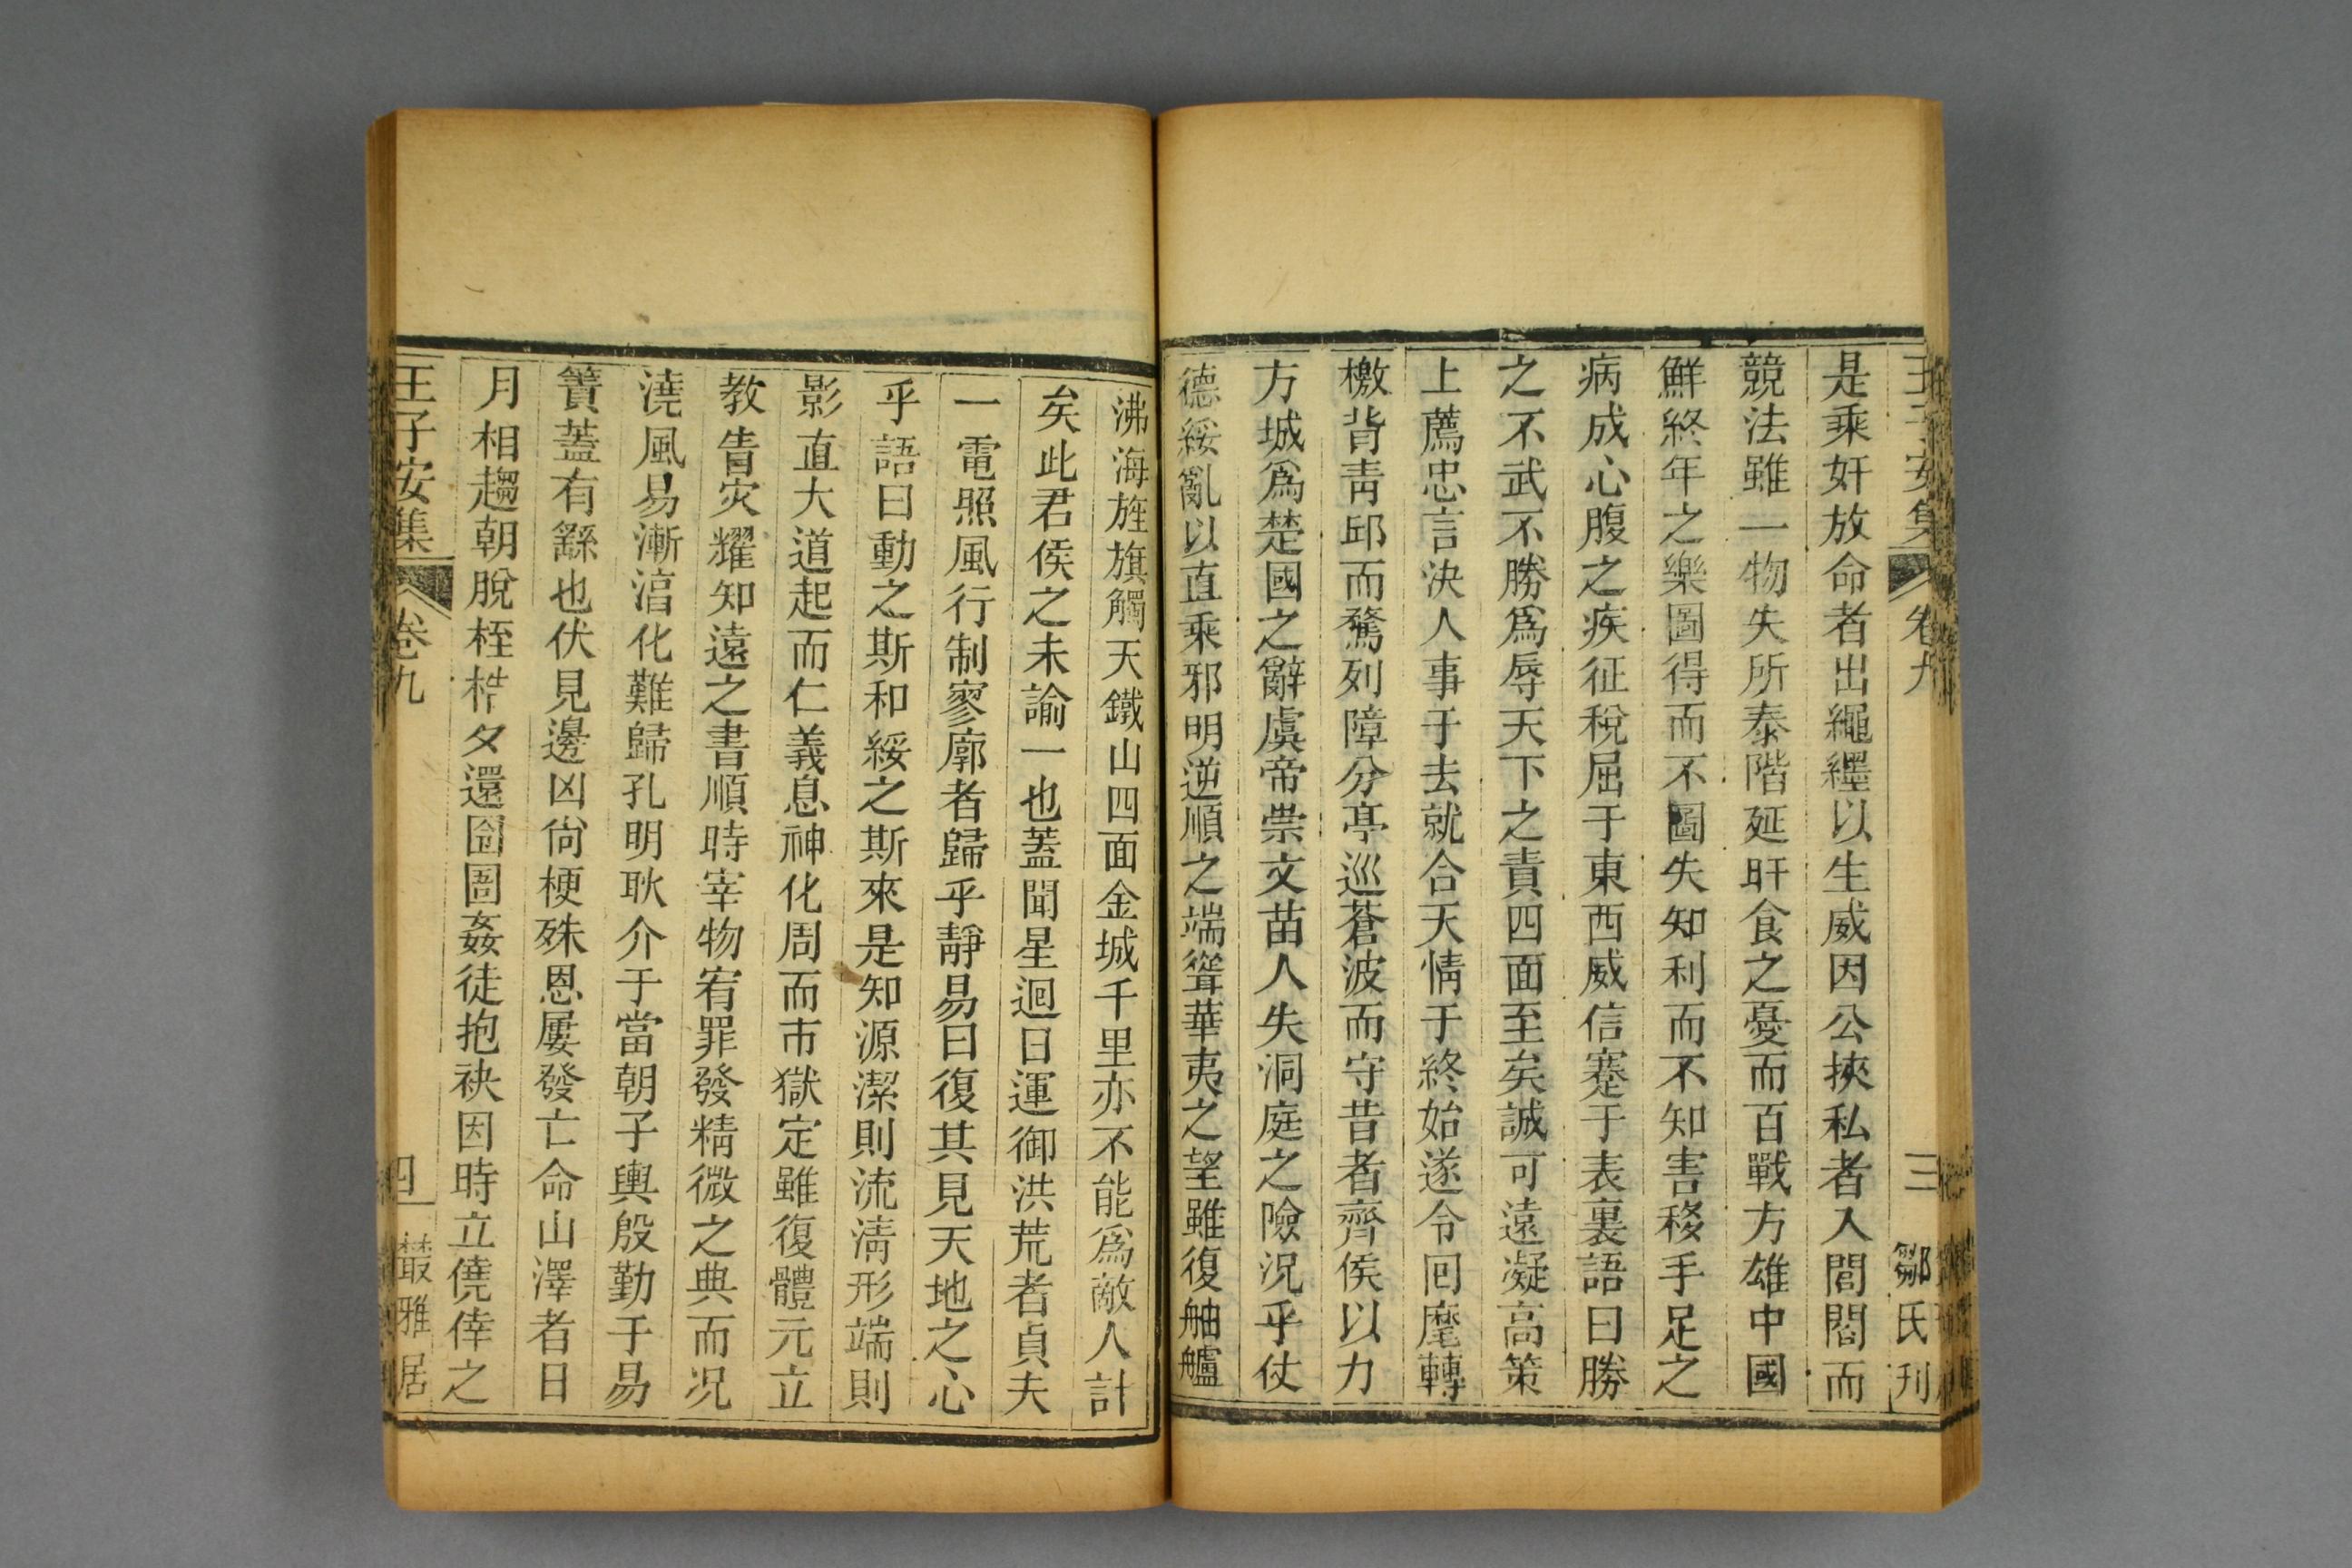 王子安集 卷九 三 鄒氏刊
是乘奸放命者出繩纆以生威因公挾私者入閭閻而
競法雖一物失所泰階延旰食之憂而百戰方雄中國
鮮終年之樂圖得而不圖失知利而不知害移手足之
病成心腹之疾征稅屈于東西威信蹇于表裏語曰勝
之不武不勝爲辱天下之責四面至矣誠可遠凝高策
上薦忠言決人事于去就合天情于終始遂令回麾轉
檄背靑邱而騖列障分亭巡蒼波而守昔者齊侯以力
方城爲楚國之辭虞帝崇文苗人失洞庭之險況乎仗
德綏亂以直乘邪明逆順之端聳華夷之望雖復舳艫
沸海旌旗觸天鐵山四面金城千里亦不能爲敵人計
矣此君侯之未諭一也蓋聞星迴日運御洪荒者貞夫
一電照風行制寥廓者歸乎靜易曰復其見天地之心
乎語曰動之斯和綏之斯來是知源潔則流淸形端則
影直大道起而仁義息神化周而市獄定雖復體元立
教眚灾耀知遠之書順時宰物宥罪發精微之典而況
澆風易漸滔化難歸孔明耿介于當朝子輿殷勤于易
簀蓋有繇也伏見邊凶尙梗殊恩屢發亡命山澤者日
月相趨朝脫桎梏夕還囹圄姦徒抱袂因時立僥倖之
王子安集 卷九 四 叢雅居